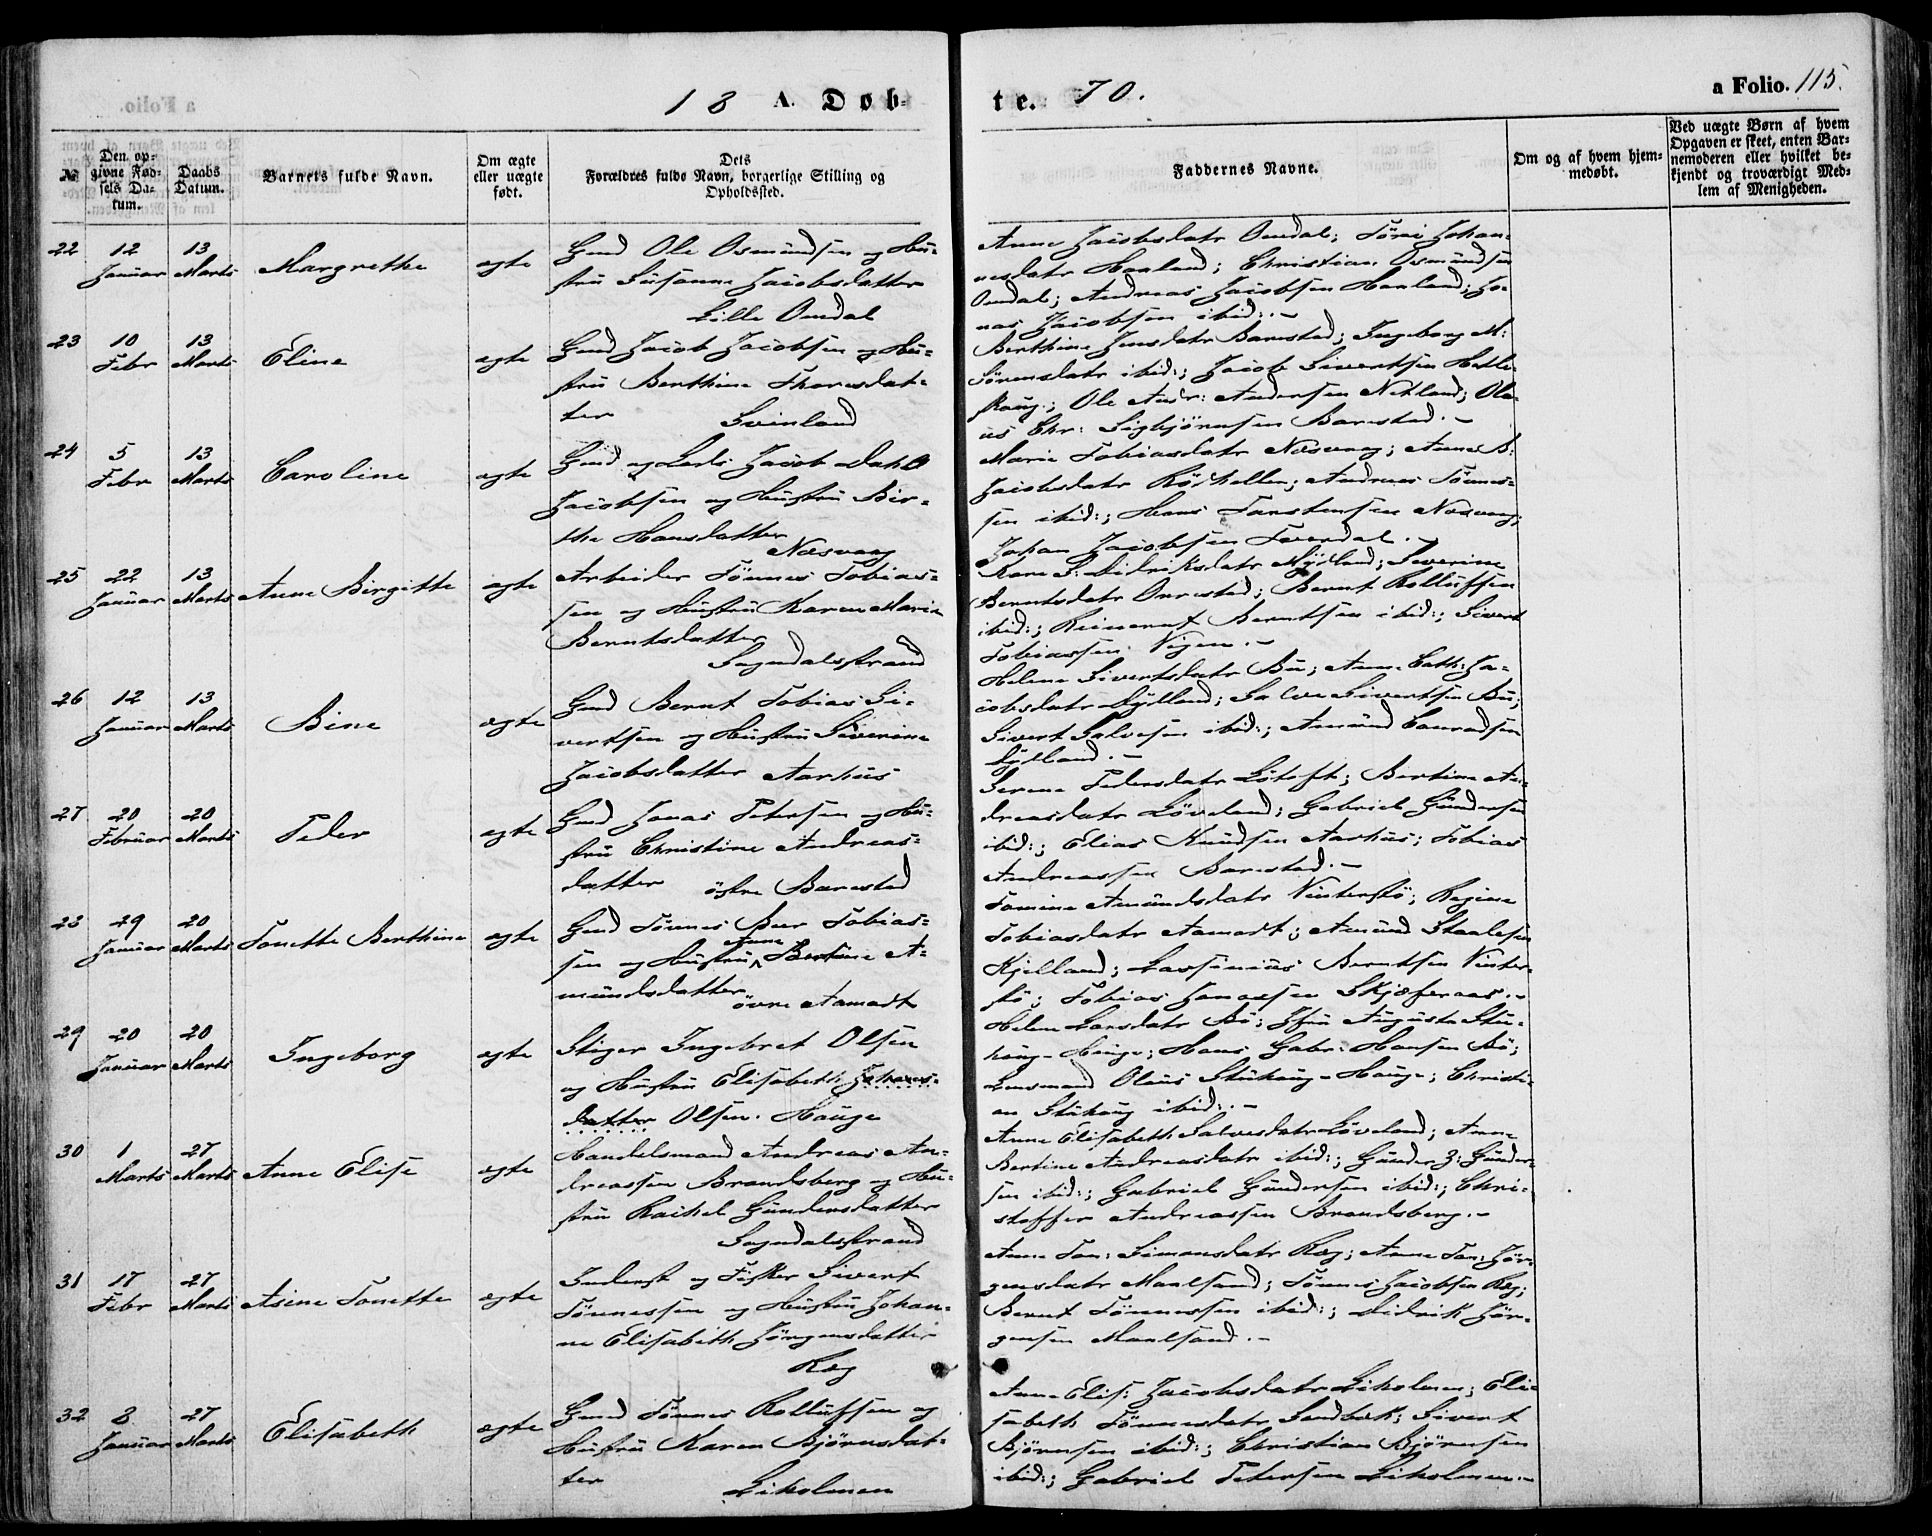 18 A. Døbte. 70.
a Folio. 115.
№
Den opgivne Fødsels Datum.
Daabs Datum.
Barnets fulde Navn.
Om ægte eller uægte født.
Dets Forældres fulde Navn, borgerlige Stilling og Opholdssted.
Faddernes Navne.
Om og af hvem hjemmedøbt.
Ved uægte Børn af hvem Opgaven er skeet, enten Barnemoderen eller hvilket bekjendt og troværdigt Medlem af Menigheden.
22 12 Januar 13 Marts Margrethe ægte
Gmd Ole Osmundsen og Hu-
stru Susanne Jacobsdatter
Lille Omdal
Anne Jacobsdatr Omdal; Töri Johan-
nesdatr Haaland; Christian Osmundsen
Omdal; Andreas Jacobsen Haaland; Jo-
nas Jacobsen ibid:.-
23 10 Febr 13 Marts Eline ægte
Gmd Jacob Jacobsen og Hu-
stru Berthine Thoresdat-
ter
Svinland
Berthine Jensdatr Barestad; Ingeborg M:
Sörensdatr ibid:; Jacob Sivertsen Hetle-
skaug; Ole Andr: Andersen Netland; Ola-
us Chr: Sigbjörnsen Barestad.-
24 5 Febr 13 Marts Caroline ægte
Gmd og Lods Jacob Dahl
Jacobsen og Hustru Bir-
the Hansdatter
Nesvaag
Marie Tobiasdatr Nesvaag; Anne B:
Jacobsdatr Röskellen; Andreas Tönnes-
sen ibid:; Hans Torstensen Nesvaag;
Johan Jacobsen
25 22 Januar 13 Marts Anne Birgitte ægte
Arbeider Tönnes Tobias-
sen og Hustru Karen Marie
Berntsdatter
Sogndalsstrand
Kare S: Didriksdatr Mydland; Severine
Berntsdatr Orrestad; Bernt Rolluffsen
ibid:; Reinert Berntsen ibid:; Sivert
Tobiassen Vigen.-
26 12 Januar 13 Marts Bine ægte
Gmd Bernt Tobias Si-
vertsen og Hustru Siverine
Jacobsdatter Aarhus
Helene Sivertsdatr Bu; Anne Cath: Ja-
cobsdatr Gylland; Salve Sivertsen Bu;
Sivert Salvesen ibid:; Amund Conradsen
Gylland.-
27 20 Februar 20 Marts Peder ægte
Gmd Jonas Petersen og Hu-
stru Christine Andreas-
datter östre Barestad
Serene Pedersdatr Lötoft; Bertine An-
dreasdatr Löveland; Gabriel Gundersen
ibid:; Elias Knudsen Aarhus; Tobias
Andreassen Barestad.-
28 29 Januar 20 Marts Tonette Berthine ægte
Gmd Tönnes Tobias-
sen og Hustru Anne Bertine A-
mundsdatter
övre Aamodt
Tomine Amundsdatr Vinterstö; Regine
Tobiasdatr Aamodt; Amund Staalesen
Kjelland; Lassenius Berntsen Vinter-
stö; Tobias Jonassen Skjeveraas.-
29 20 Januar 20 Marts Ingeborg ægte
Stiger Ingebret Olsen
og Hustru Elisabeth Johans-
datter Olsen. Hauge
Helene Larsdatr Bö; Jfru Augusta Stu-
haug-Hauge; Hans Gabr: Hansen Bö;
Lensmand Olaus Stuhaug-Hauge; Christi-
an Stuhaug ibid:.-
30 1 Marts 27 Marts Anne Elise ægte
Handelsmand Andreas An-
dreassen Brandsberg og Hu-
stru Rachel Gundersdatter
Sogndalsstrand
Anne Elisabeth Salvesdatr Löveland; Anne
Bertine Andreasdatr ibid:; Gunder Z: Gunder-
sen ibid:; Gabriel Gundersen ibid:; Chri-
stoffer Andreassen Brandsberg.-
31 17 Febr 27 Marts Asine Tonette ægte
Inderst og Fisker Sivert
Tönnessen og Hustru Johan-
ne Elisabeth Jörgensdatter
Reg
Anne Ton: Simonsdatr Reg; Anne Ton: Jör-
gensdatr Maalsund; Tönnes Jacobsen Reg;
Bernt Tönnessen ibid:; Didrik Jör-
gensen Maalsund.-
32 8 Januar 27 Marts Elisabeth ægte
Gmd Tönnes Rolluffsen og
Hustru Karen Björnsdat-
ter
Liholmen
Anne Elis: Jacobsdatr Liholmen; Eli-
sabeth Tönnesdatr Sandbæk; Sivert
Björnsen ibid:; Christian Björnsen
ibid:; Gabriel Petersen Liholmen.-